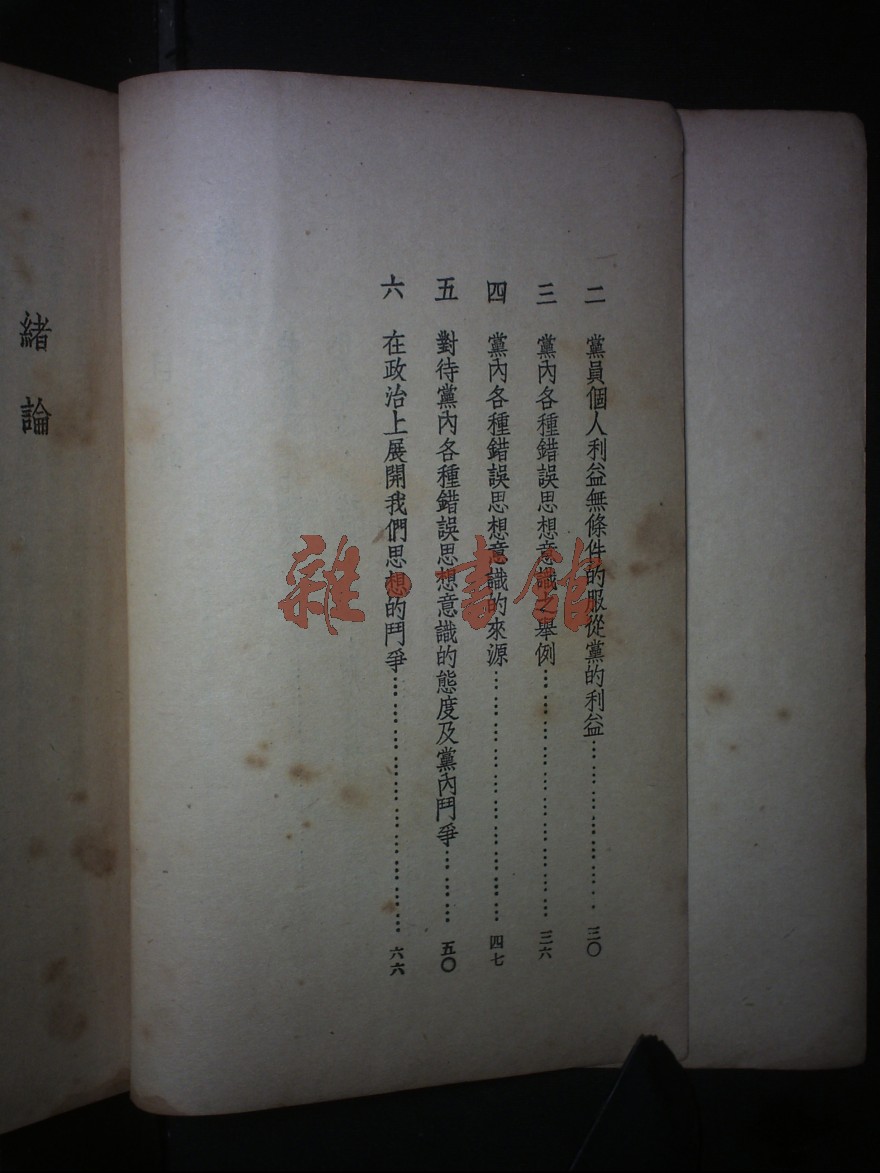 二 黨員個人利益無條件的服從黨的利益……………………三〇
三 黨內各種錯誤思想意識之舉例……………………………三六
四 黨內各種錯誤思想意識的來源……………………………四七
五 對待黨內各種錯誤思想意識的態度及黨內鬥爭…………五〇
六 在政治上展開我們思想的鬥爭……………………………六六
緒論
雜·書館